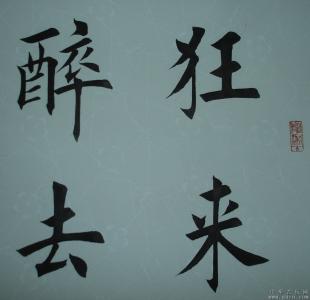 狂来
醉去